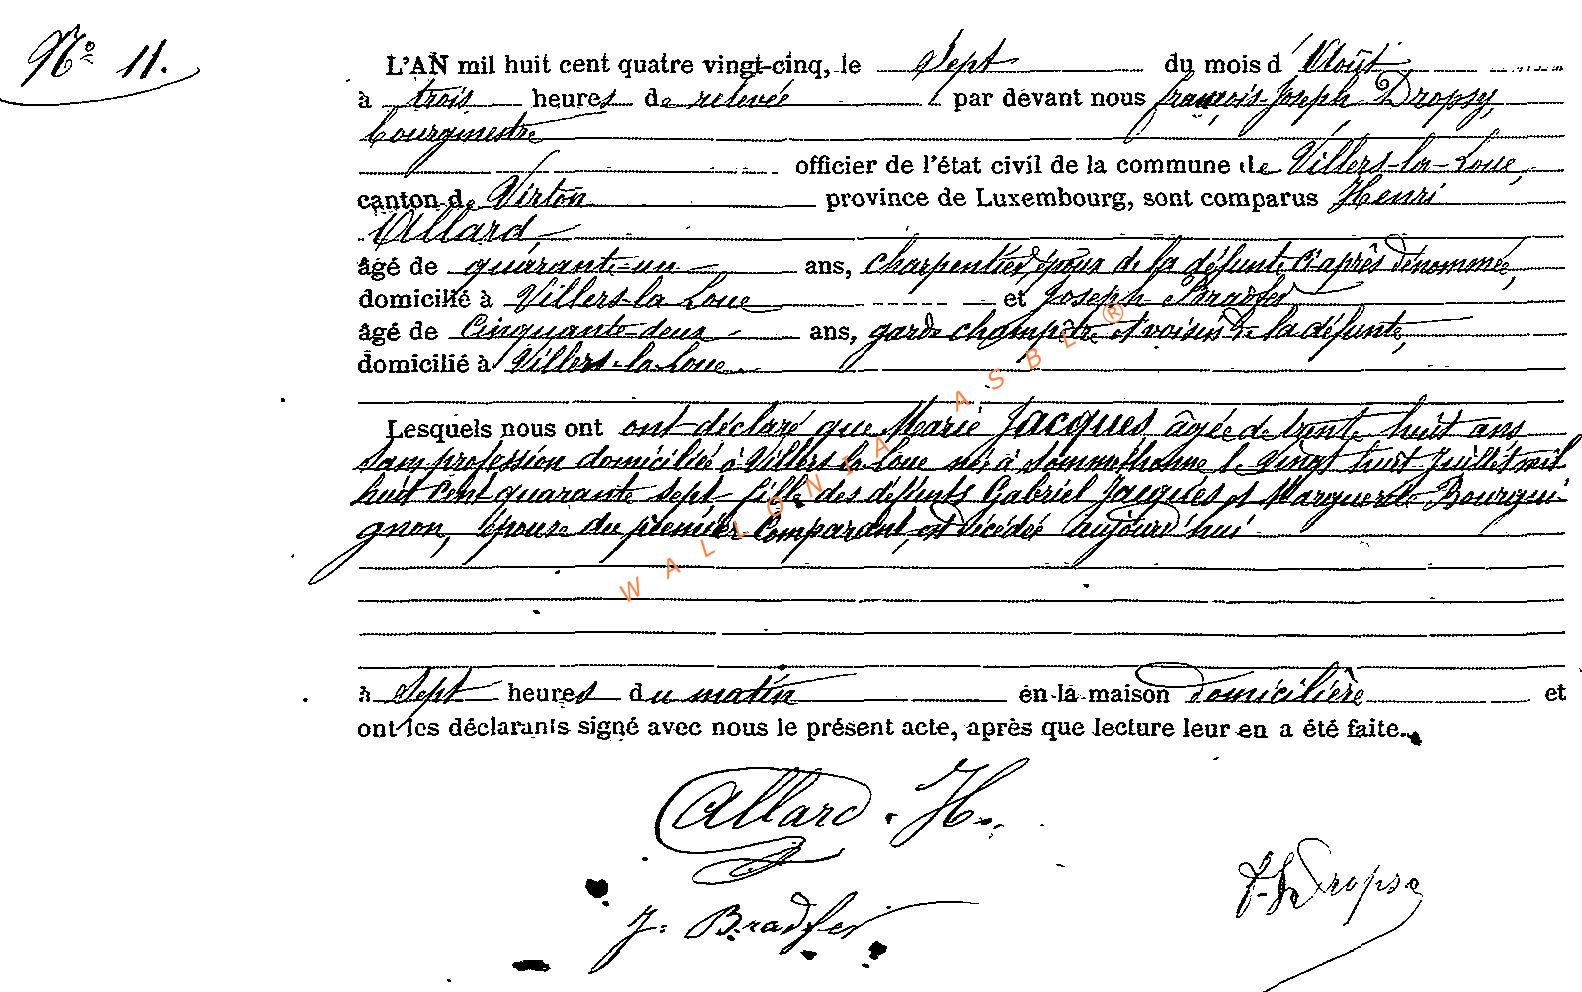 N° 11.
L'AN mil huit cent quatre vingt-cinq, le sept du mois d'Août
à trois heures de relevée par devant nous françois-Joseph Dropsy,
bourgmestre
officier de l'état civil de la commune de Villers-la-Loue,
canton de Virton province de Luxembourg, sont comparus Henri
Allard,
âgé de quarante-un ans, charpentier, époux de la défunte ci-après dénommée,
domicilié à Villers-la Loue et Joseph Bradfer
âgé de cinquante-deux ans, garde champêtre et voisin de la défunte,
domicilié à Villers-la-Loue.
Lesquels nous ont ont déclaré que Marie Jacques âgée de trente huit ans
sans profession domiciliée à Villers la Loue née à Sommethonne le vingt huit Juillet mil
huit cent quarante sept fille des défunts Gabriel Jacques et Marguerite Bourgui-
gnon, épouse du premier comparant, est décédée aujourd'hui
à sept heures du matin en la maison domicilière et
ont les déclarants signé avec nous le présent acte, après que lecture leur en a été faite.
Allard. H.
J. Bradfer
F. J. Dropsy
WALLONIA ASBL ®